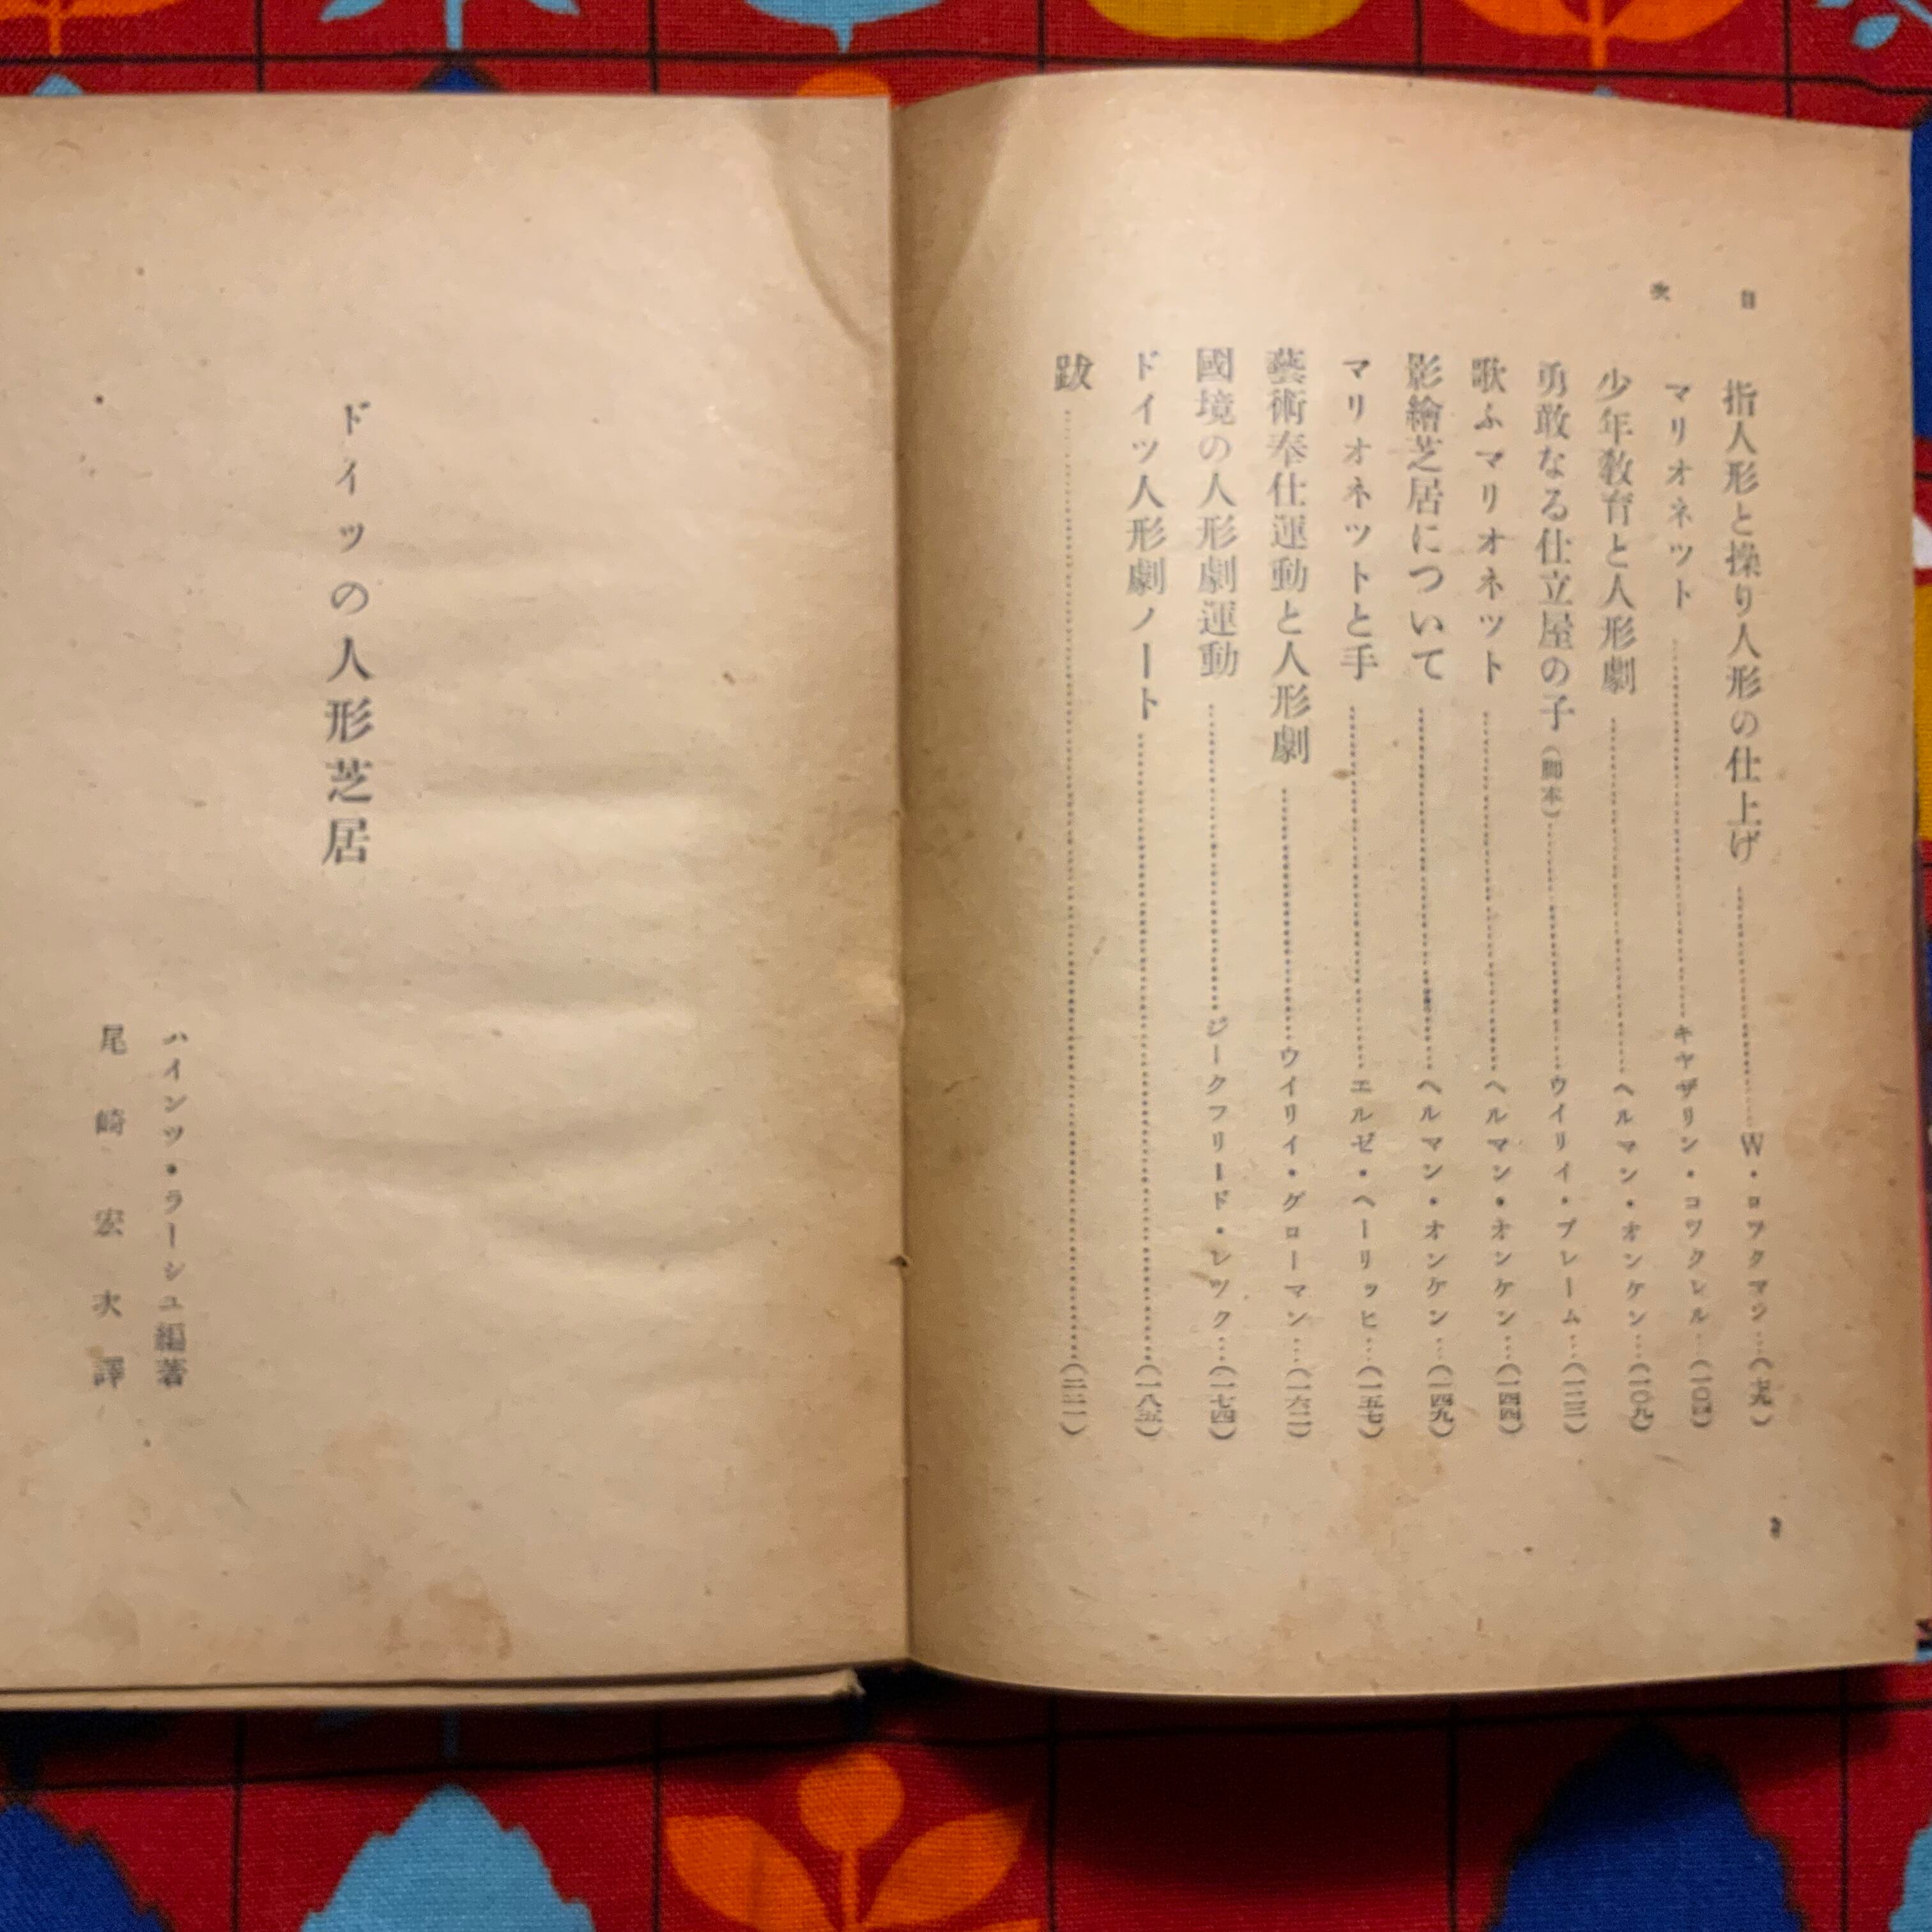 目次
指人形と操り人形の仕上げ……W・ロツクマン…(七九)
マリオネツト……キヤザリン・コツクレル…(一〇四)
少年教育と人形劇……ヘルマン・オンケン…(一〇九)
勇敢なる仕立屋の子(脚本)……ウイリイ・ブレーム…(一二三)
歌ふマリオネット……ヘルマン・オンケン…(一四四)
影繪芝居について……ヘルマン・オンケン…(一四九)
マリオネツトと手……エルゼ・ヘーリッヒ…(一五七)
藝術奉仕運動と人形劇……ウイリイ・グローマン…(一六二)
國境の人形劇運動……ジークフリード・レツク…(一七四)
ドイツ人形劇ノート……(一八五)
跋……
ドイツの人形芝居
ハインツ・ラーシュ編著
尾崎宏次譯